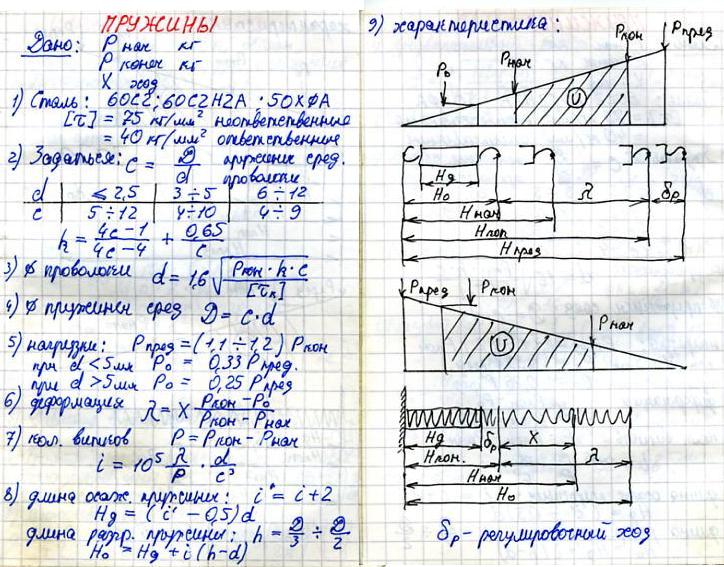 ПРУЖИНЫ
Дано: P нач кг
P конеч кг
X ход
1) Сталь: 60С2; 60С2Н2А; 50ХФА
[τ] = 25 кг/мм² неответственные
= 40 кг/мм² ответственные
2) Задаться: c = D/d пружины сред. проволоки
d | ≤ 2,5 | 3÷5 | 6÷12
c | 5÷12 | 4÷10 | 4÷9
k = (4c-1)/(4c-4) + 0,65/c
3) ϕ проволоки d = 1,6 √(Pкон·k·c/[τк])
4) ϕ пружинен сред D = c·d
5) нагрузки: Pпред = (1,1÷1,2) Pкон
при d<5мм P₀ = 0,33 Pпред.
при d>5мм P₀ = 0,25 Pпред
6) деформация λ = X (Pкон-P₀)/(Pкон-Pнач)
7) кол. витков P = Pкон-Pнач
i = 10⁵ λ/P · d/c³
8) длина сжат. пружины: i' = i+2
Hд = (i'-0,5)d
длина разр. пружины: h = D/3 ÷ D/2
H₀ = Hд + i(h-d)
9) характеристика:
P₀ Pнач Pкон Pпред
U
Hд
H₀ λ δр
Hнач
Hкон
Hпред
Pпред Pкон
Pнач
U
Hд δр X
Hкон. λ
Hнач
H₀
δр - регулировочный ход